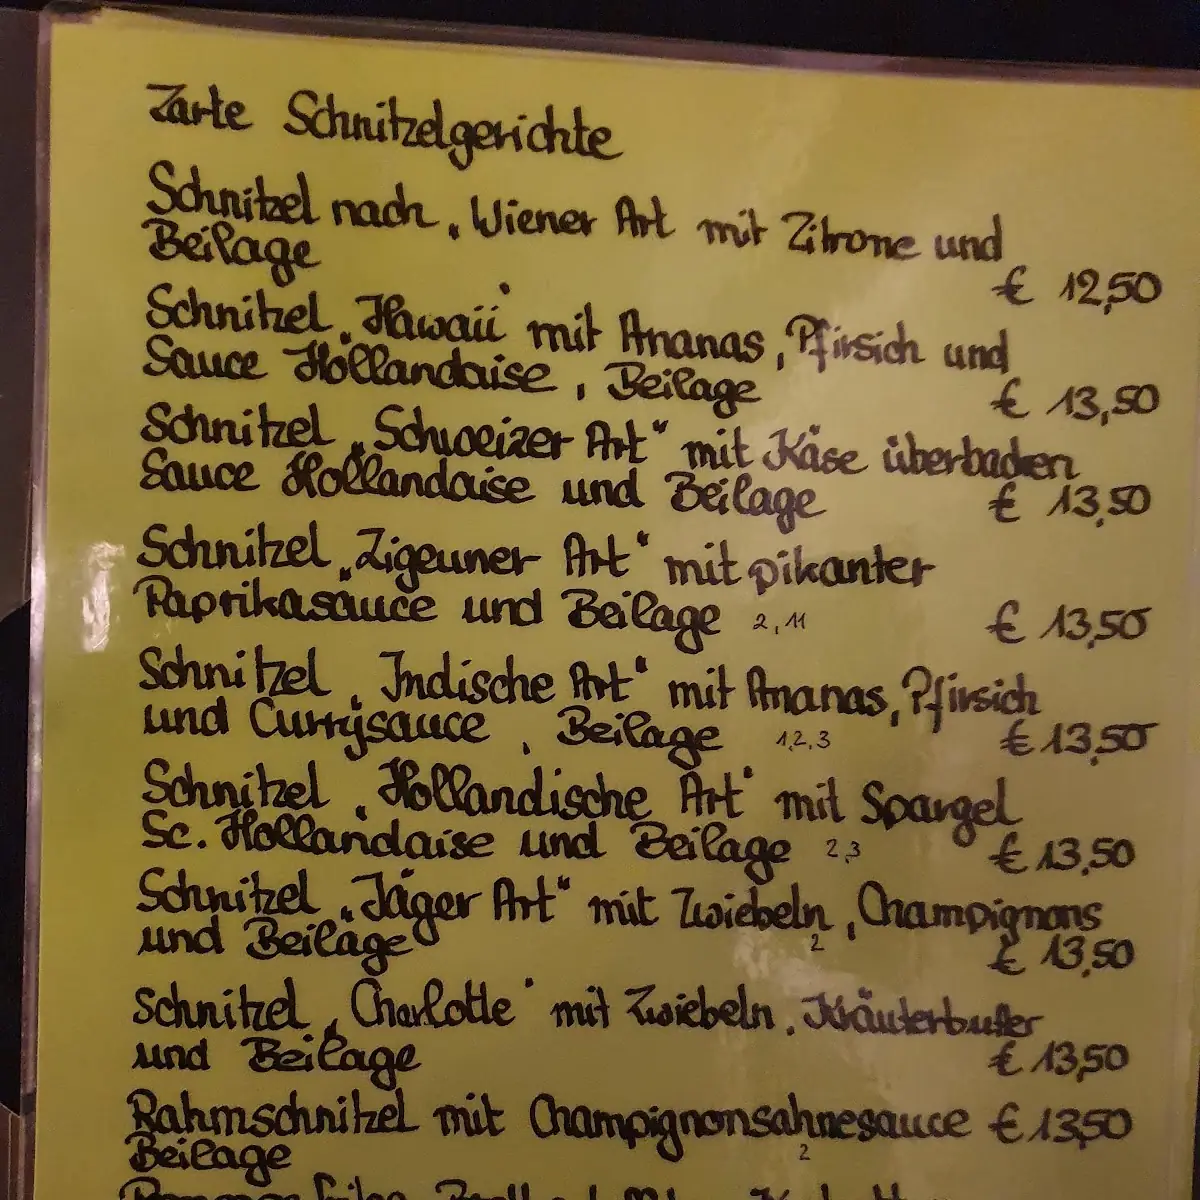 Zarte Schnitzelgerichte
Schnitzel nach „Wiener Art mit Zitrone und
Beilage
€ 12,50
Schnitzel „Hawaii" mit Ananas, Pfirsich und
Sauce Hollandaise, Beilage € 13,50
Schnitzel „Schweizer Art" mit Käse überbacken
Sauce Hollandaise und Beilage € 13,50
Schnitzel „Zigeuner Art" mit pikanter
Paprikasauce und Beilage 2, 11 € 13,50
Schnitzel „Indische Art" mit Ananas, Pfirsich
und Currysauce, Beilage 1,2,3 € 13,50
Schnitzel „Holländische Art" mit Spargel
Sc. Hollandaise und Beilage 2,3 € 13,50
Schnitzel „Jäger Art" mit Zwiebeln, Champignons
und Beilage 2 € 13,50
Schnitzel „Charlotte" mit Zwiebeln, Kräuterbutter
und Beilage € 13,50
Rahmschnitzel mit Champignonsahnesauce € 13,50
Beilage 2